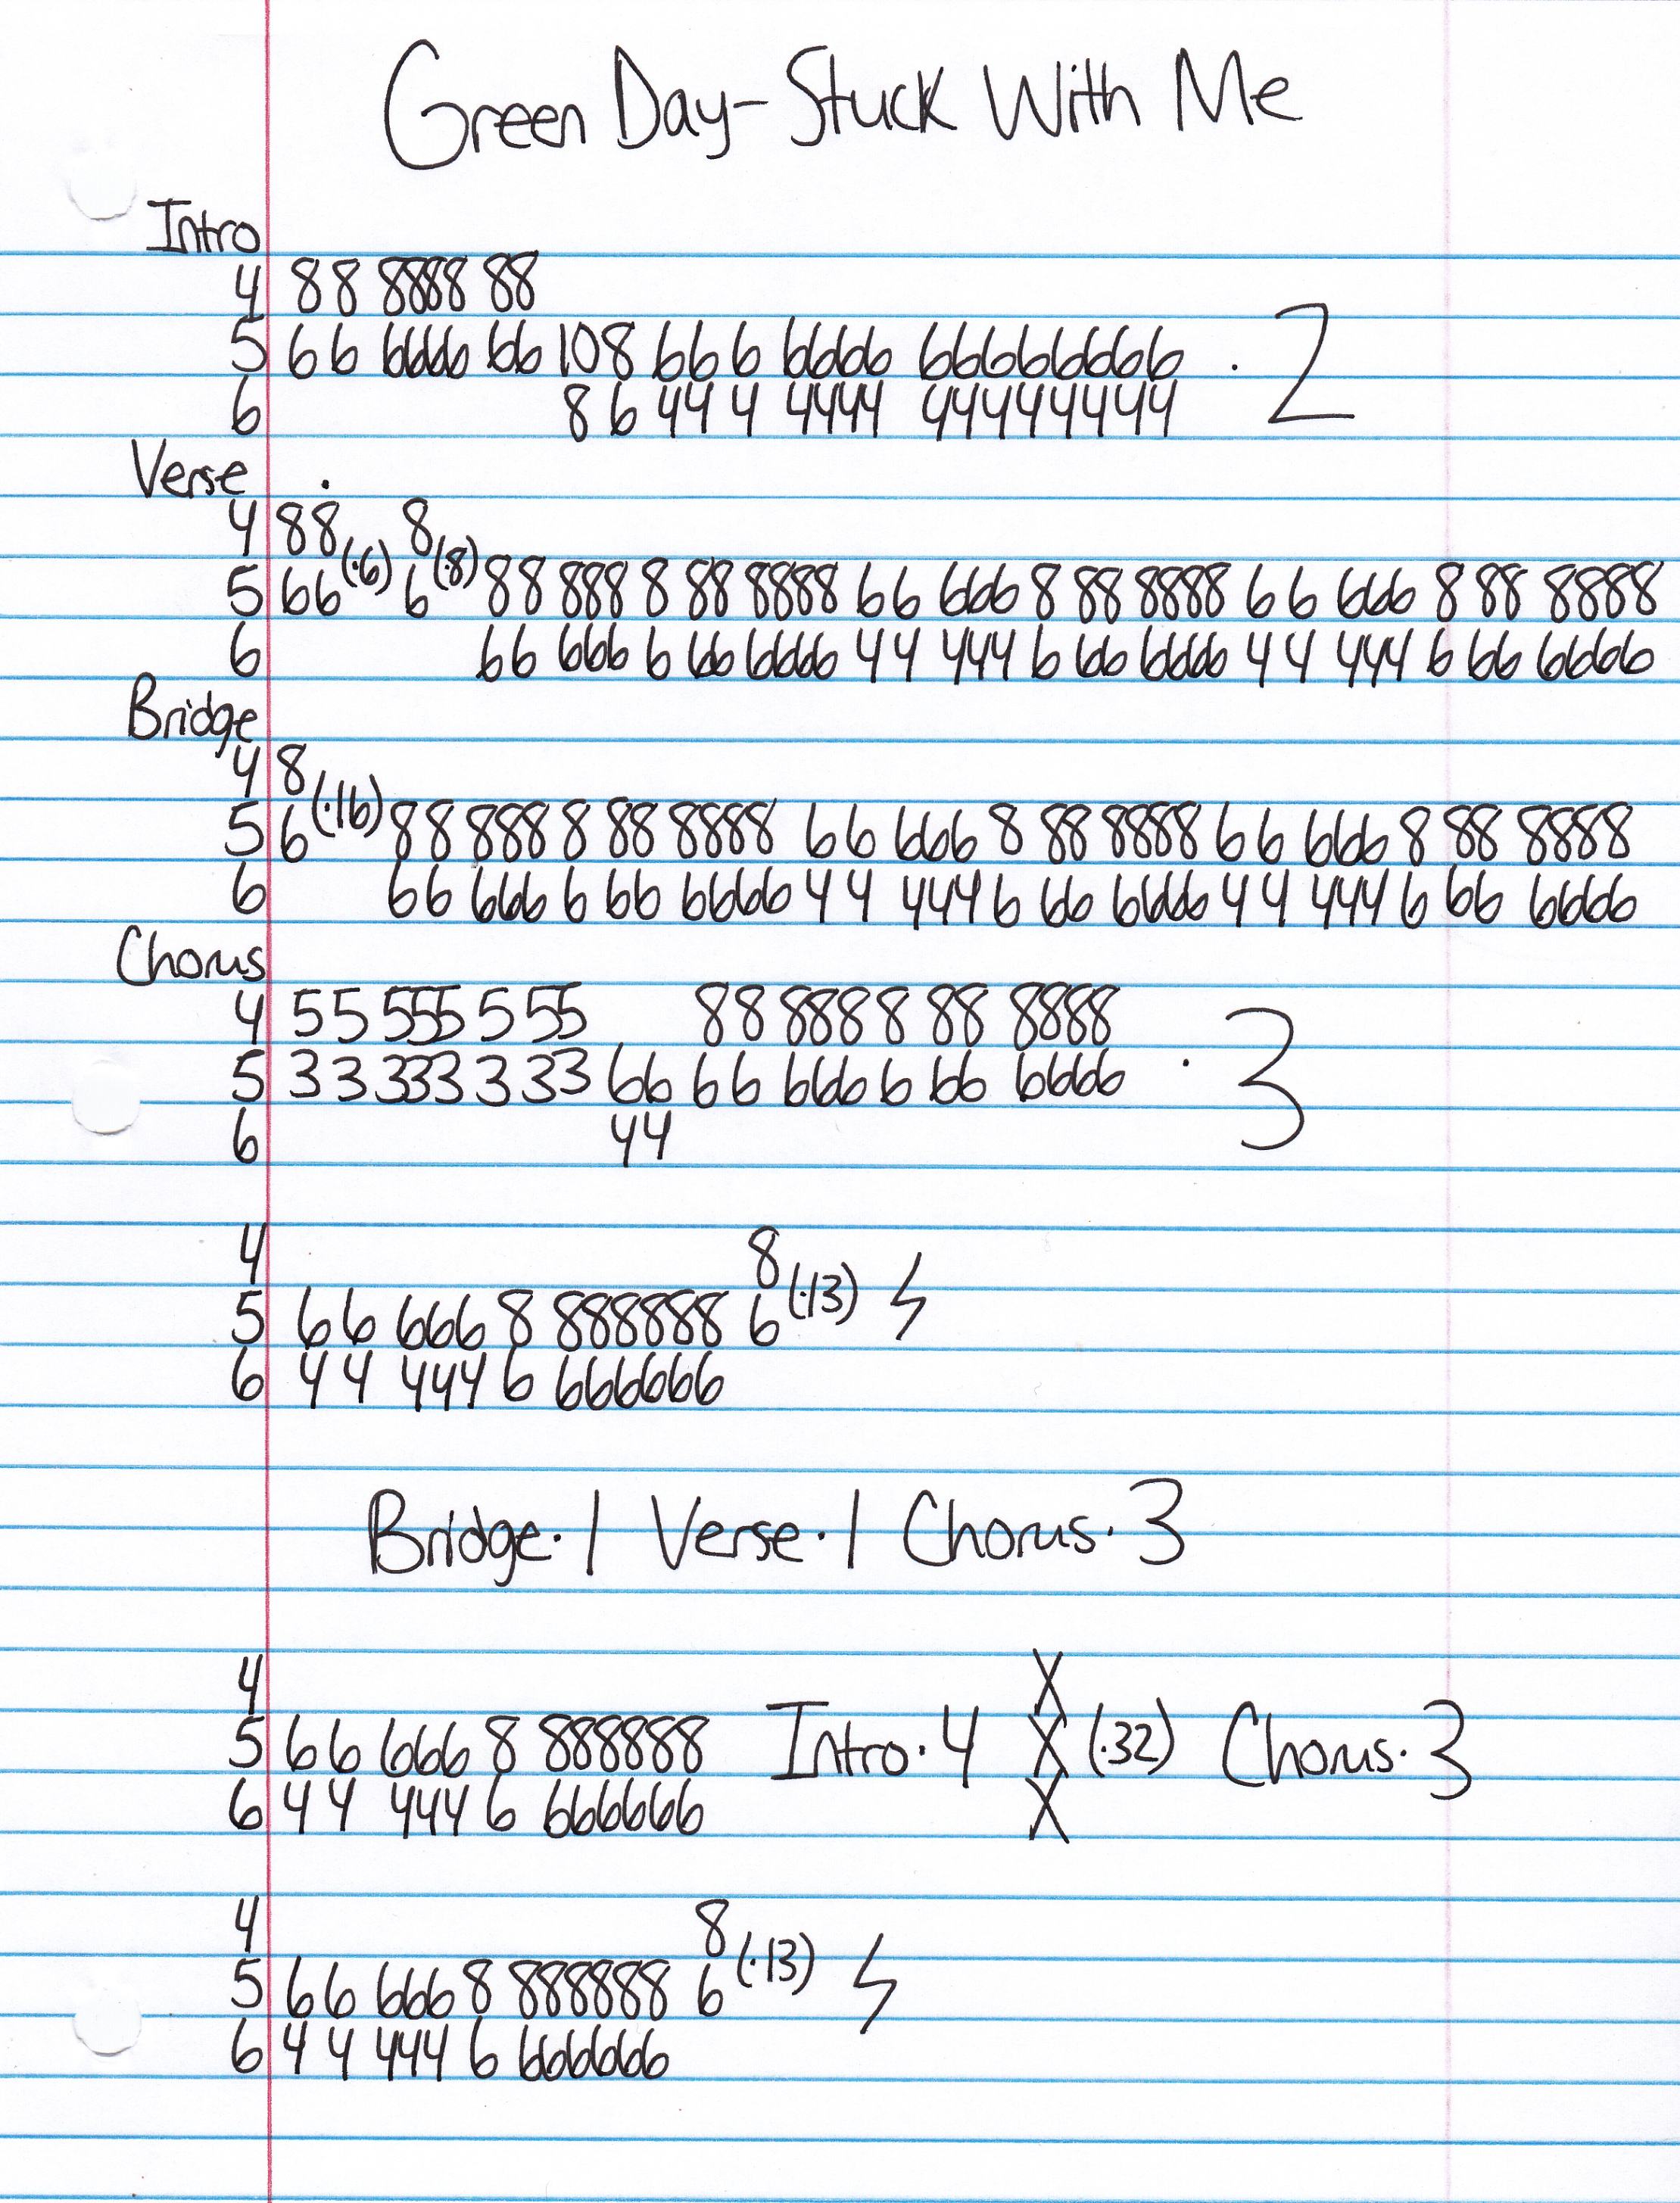 Green Day- Stuck With Me
Intro
4 88 8888 88
5 66 6666 66 108 66 6 6666 66666666 · 2
6 8 6 44 4 4444 44444444
Verse
4 88 8
5 66(·6) 6(·8) 88 888 8 88 8888 66 666 8 88 8888 66 666 8 88 8888
6 66 666 6 66 6666 44 444 6 66 6666 44 444 6 66 6666
Bridge
4 8
5 6(·16) 88 888 8 88 8888 66 666 8 88 8888 66 666 8 88 8888
6 66 666 6 66 6666 44 444 6 66 6666 44 444 6 66 6666
Chorus
4 55 555 5 55 88 888 8 88 8888
5 33 333 3 33 66 66 666 6 66 6666 · 3
6 44
4 8
5 66 666 8 888888 6(·13) ϟ
6 44 444 6 666666
Bridge·1 Verse·1 Chorus·3
4 X
5 66 666 8 888888 Intro·4 X (·32) Chorus·3
6 44 444 6 666666 X
4 8
5 66 666 8 888888 6(·13) ϟ
6 44 444 6 666666